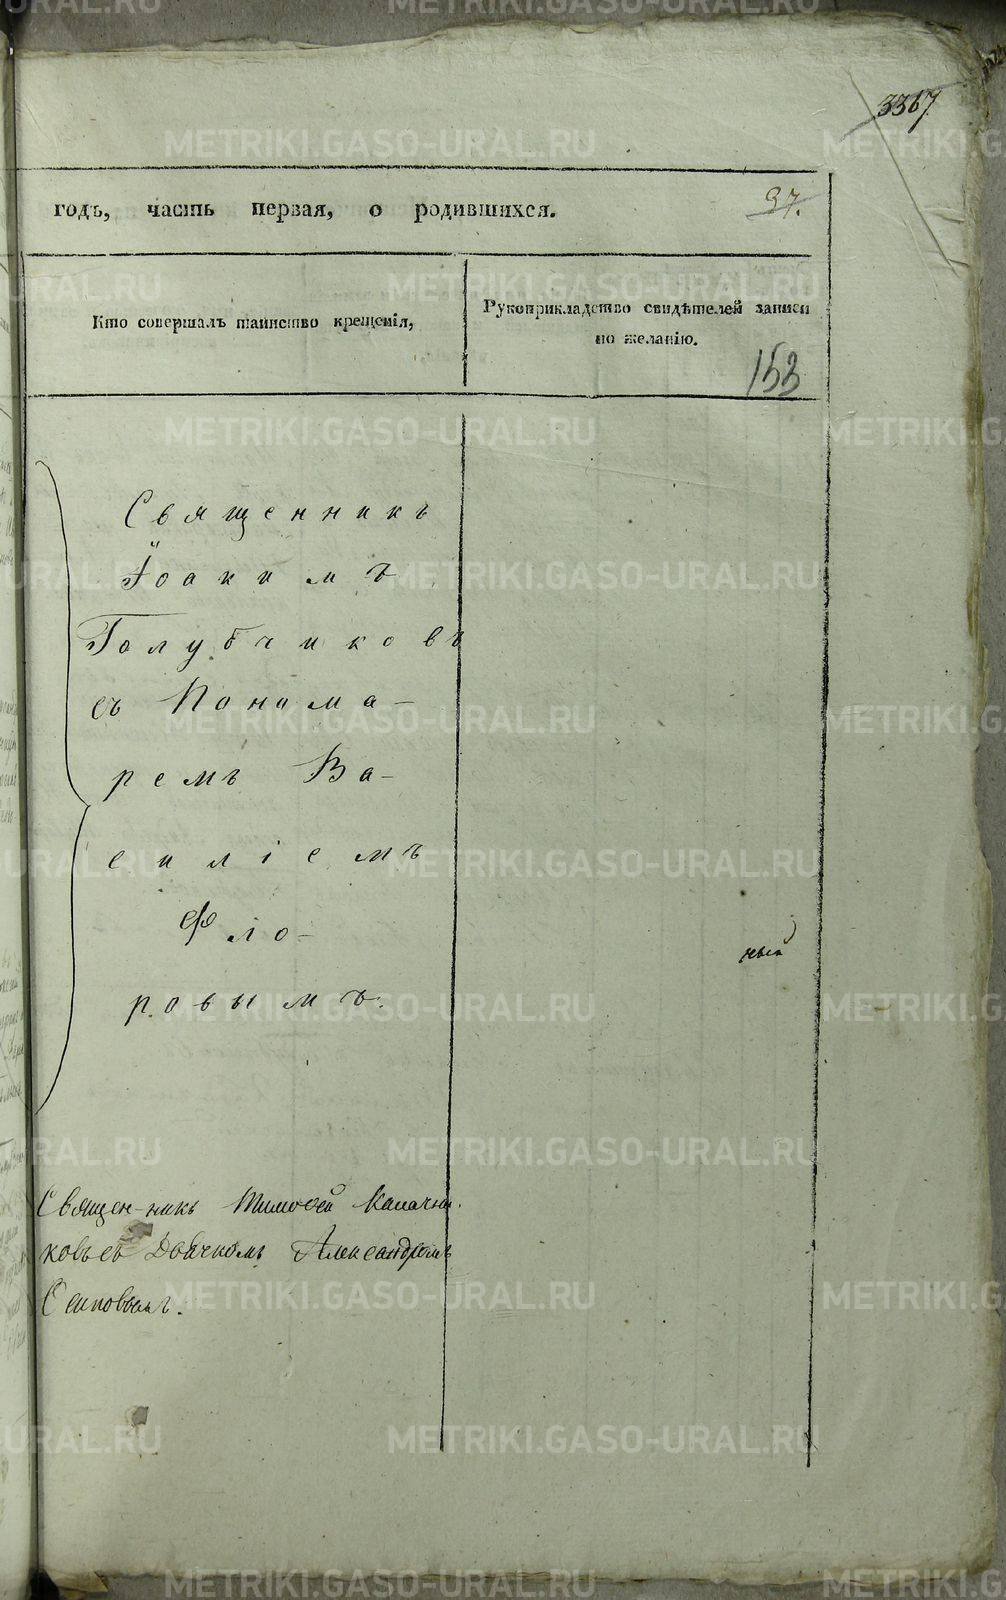 3367
годъ, часть первая, о родившихся.
97.
Кто совершалъ таинство крещенія,
Рукоприкладство свидѣтелей записи
по желанію.
153
Священникъ
Іоакимъ
Голубчиковъ
съ Понома-
ремъ Ва-
силіемъ
Фло-
ровымъ.
ный
Священ-никъ Тимофей Калачни
ковъ съ Дьячкомъ Александромъ
METRIKI.GASO-URAL.RU